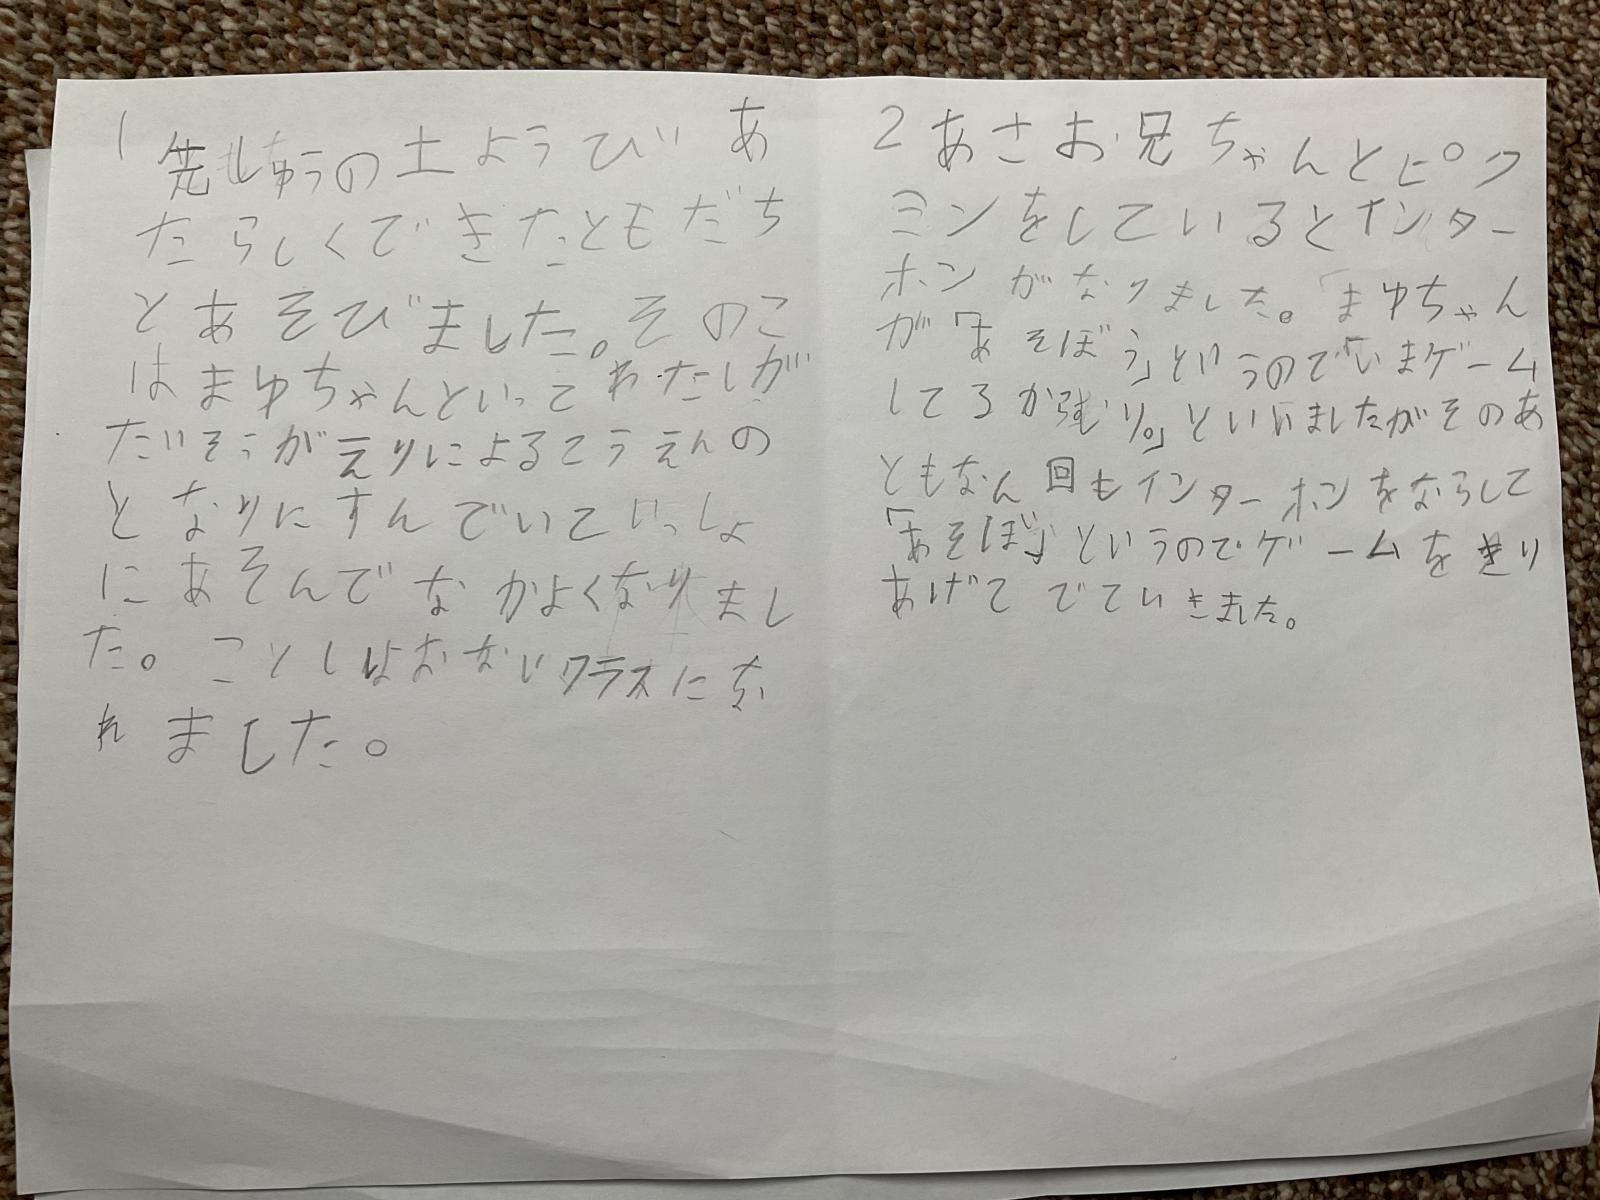 1
先しゅうの土ようび あ
たらしくできたともだち
とあそびました。そのこ
はまゆちゃんといってわたしが
だいそこがえりによるこうえんの
となりにすんでいていっしょ
にあそんでなかよくなりまし
た。ことしはおなじクラスにな
れました。
2 あさお兄ちゃんとピク
ミンをしているとインター
ホンがなりました。「まゆちゃん
が「あそぼう」というので「いまゲーム
してるからむり。」といいましたがそのあ
ともなん回もインターホンをならして
「あそぼ」というのでゲームをきり
あげてでていきました。